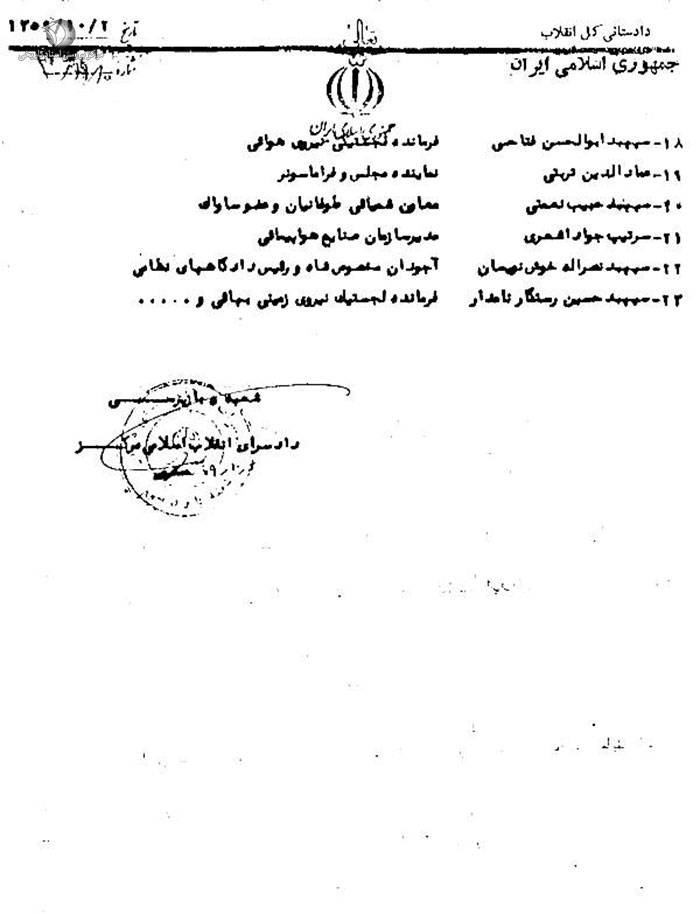 دادستانی کل انقلاب
جمهوری اسلامی ایران
تعالی
جمهوری اسلامی ایران
تاریخ
شماره
۱۸- سپهبد ابوالحسن فتاحی فرمانده لجستیکی نیروی هوائی
۱۹- عمادالدین تربتی نماینده مجلس و فراماسونر
۲۰- سپهبد حبیب نعمتی معاون شمیائی طوفانیان و عضو ساواک
۲۱- سرتیپ جواد اشعری مدیر سازمان صنایع هواپیمائی
۲۲- سپهبد نصراله خوش نویسان آجودان مخصوص شاه و رئیس دادگاههای نظامی
۲۳- سپهبد حسین رستگار نامدار فرمانده لجستیک نیروی زمینی بهائی و ۰۰۰۰۰
شعبه بازپرسی
دادسرای انقلاب اسلامی مرکز